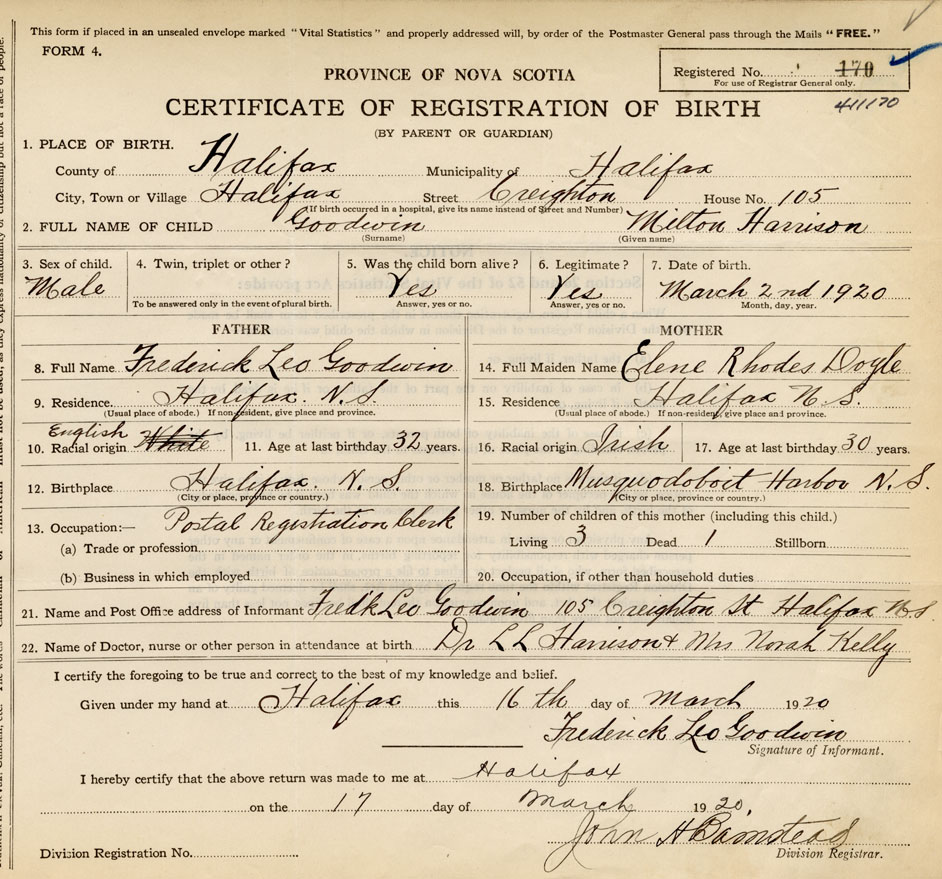 This form if placed in an unsealed envelope marked "Vital Statistics" and properly addressed will, by order of the Postmaster General pass through the Mails "FREE."
FORM 4.
Registered No. 170
For use of Registrar General only.
411170
PROVINCE OF NOVA SCOTIA
CERTIFICATE OF REGISTRATION OF BIRTH
(BY PARENT OR GUARDIAN)
1. PLACE OF BIRTH.
County of Halifax Municipality of Halifax
City, Town or Village Halifax Street Creighton House No. 105
(If birth occurred in a hospital, give its name instead of Street and Number)
2. FULL NAME OF CHILD Goodwin Milton Harrison
(Surname) (Given name)
3. Sex of child. 4. Twin, triplet or other? 5. Was the child born alive? 6. Legitimate? 7. Date of birth.
Male Yes Yes March 2nd 1920
To be answered only in the event of plural birth. Answer, yes or no. Answer, yes or no. Month, day, year.
FATHER
8. Full Name Frederick Leo Goodwin
9. Residence. Halifax. N.S.
(Usual place of abode.) If non-resident, give place and province.
English
10. Racial origin White 11. Age at last birthday 32 years.
12. Birthplace Halifax. N.S.
(City or place, province or country.)
13. Occupation:— Postal Registration Clerk
(a) Trade or profession
(b) Business in which employed
MOTHER
14. Full Maiden Name Elene Rhodes Doyle
15. Residence Halifax N.S.
(Usual place of abode.) If non-resident, give place and province.
16. Racial origin Irish 17. Age at last birthday 30 years.
18. Birthplace Musquodoboit Harbor N.S.
(City or place, province or country.)
19. Number of children of this mother (including this child.)
Living 3 Dead 1 Stillborn
20. Occupation, if other than household duties
21. Name and Post Office address of Informant Fredk Leo Goodwin 105 Creighton St Halifax N.S.
22. Name of Doctor, nurse or other person in attendance at birth Dr LL Harrison & Mrs Norah Kelly
I certify the foregoing to be true and correct to the best of my knowledge and belief.
Given under my hand at Halifax this 16th day of March 1920
Frederick Leo Goodwin
Signature of Informant.
I hereby certify that the above return was made to me at Halifax
on the 17 day of March 1920.
John H Barnstead
Division Registrar.
Division Registration No.